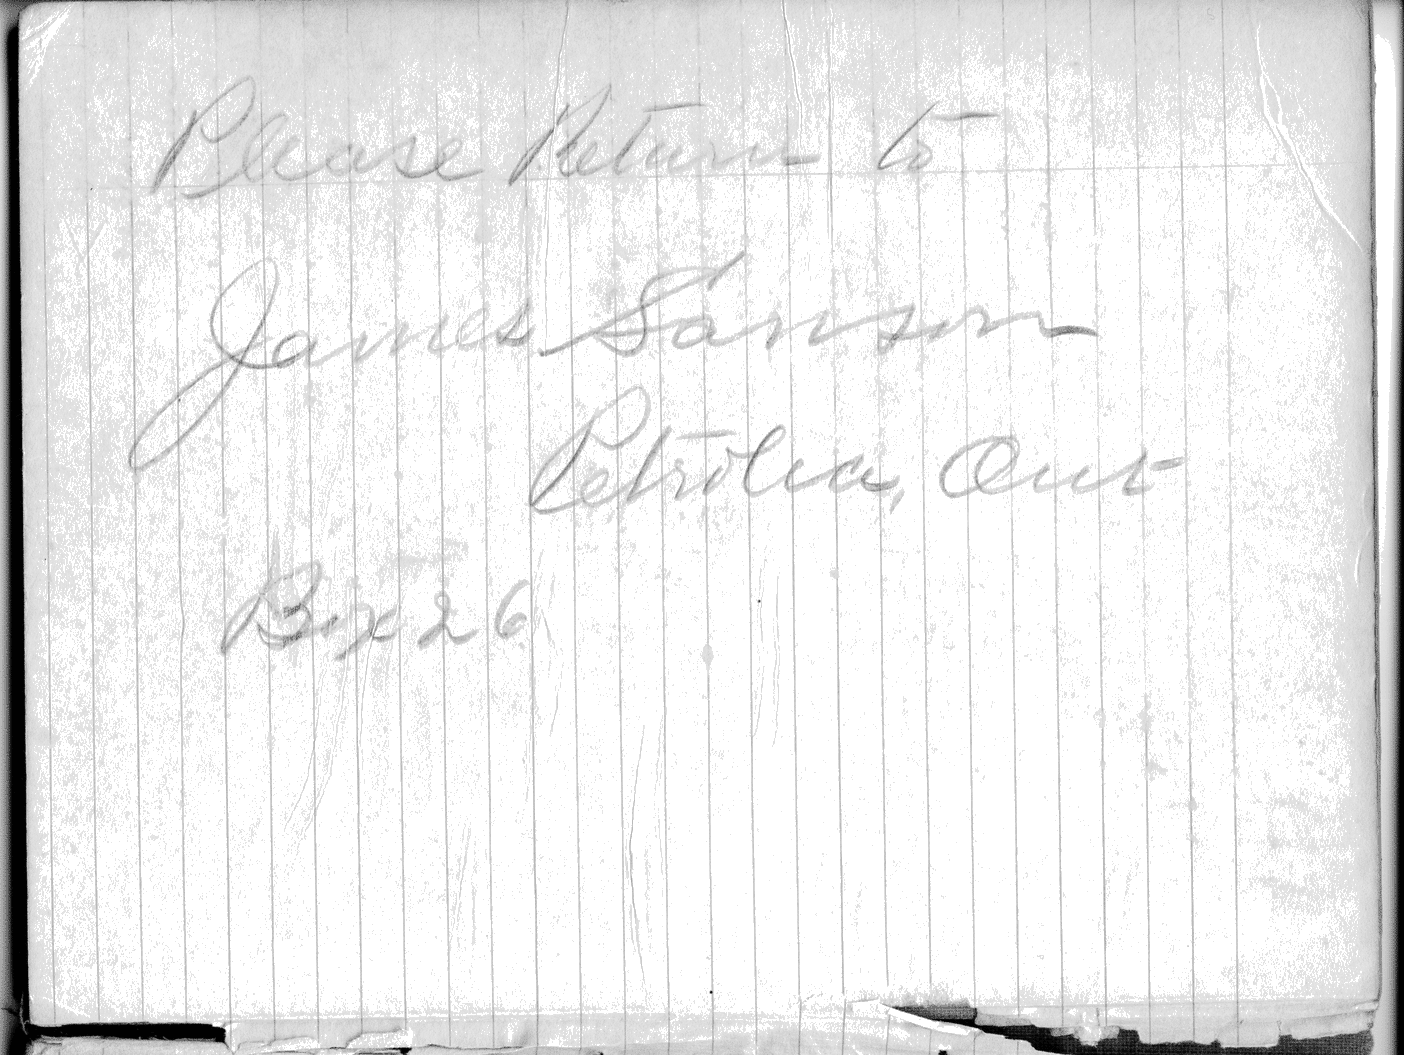 Please Return to
James Sanson
Petrolea, Ont
Box 26